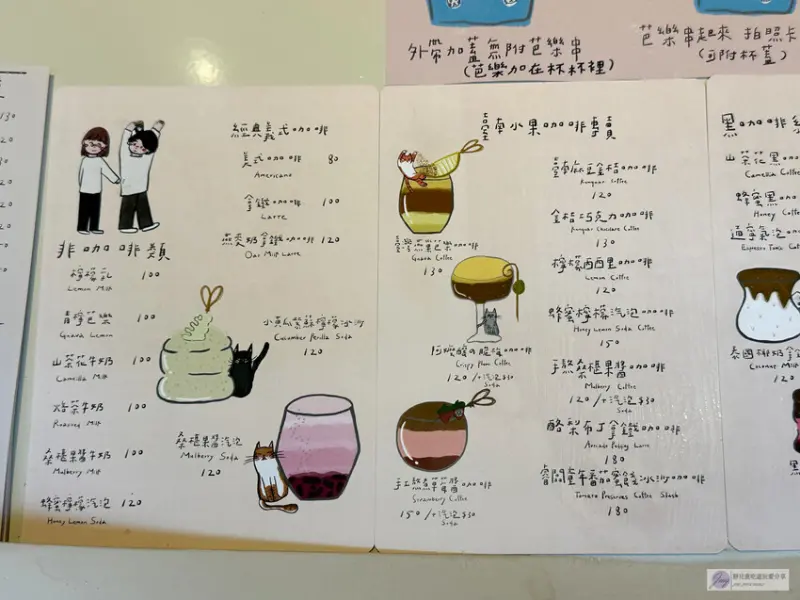 外帶加蓋無附芭樂串
(芭樂加在杯杯裡)
芭樂串起來 拍照卡
(可附杯蓋)
130
經典義式咖啡
美式咖啡 80
Americano
拿鐵 100
Latte
燕麥奶拿鐵咖啡 120
Oat Milk Latte
非咖啡類
檸檬乳 100
Lemon Milk
青檸芭樂 100
Guava Lemon
山茶花牛奶 100
Camellia Milk
焙茶牛奶 100
Roasted Milk
桑椹果醬牛奶 100
Mulberry Milk
蜂蜜檸檬汽泡 120
Honey Lemon Soda
小黃瓜紫蘇檸檬冰沙
Cucumber Perilla Soda
120
桑椹果醬汽泡
Mulberry Soda
120
臺南小果咖啡專賣
Guava Coffee
130
Crispy Plum Coffee
120 /+汽泡$30
Soda
手熬草莓醬咖啡
Strawberry Coffee
150 /+汽泡$30
Soda
臺南麻豆金桔咖啡
Kumquat Coffee
120
金桔巧克力咖啡
Kumquat Chocolate Coffee
130
檸檬西西里咖啡
Lemon Coffee
120
蜂蜜檸檬汽泡咖啡
Honey Lemon Soda Coffee
150
手熬桑椹果醬咖啡
Mulberry Coffee
120 /+汽泡$30
Soda
酪梨布丁拿鐵咖啡
Avocado Pudding Latte
180
番茄蜜餞冰沙咖啡
Tomato Preserves Coffee Slush
180
黑咖啡系
山茶花黑咖
Camellia Coffee
蜂蜜黑咖
Honey Coffee
通寧氣泡
Espresso Tonic Coffee
泰國椰奶拿
Coconut Milk